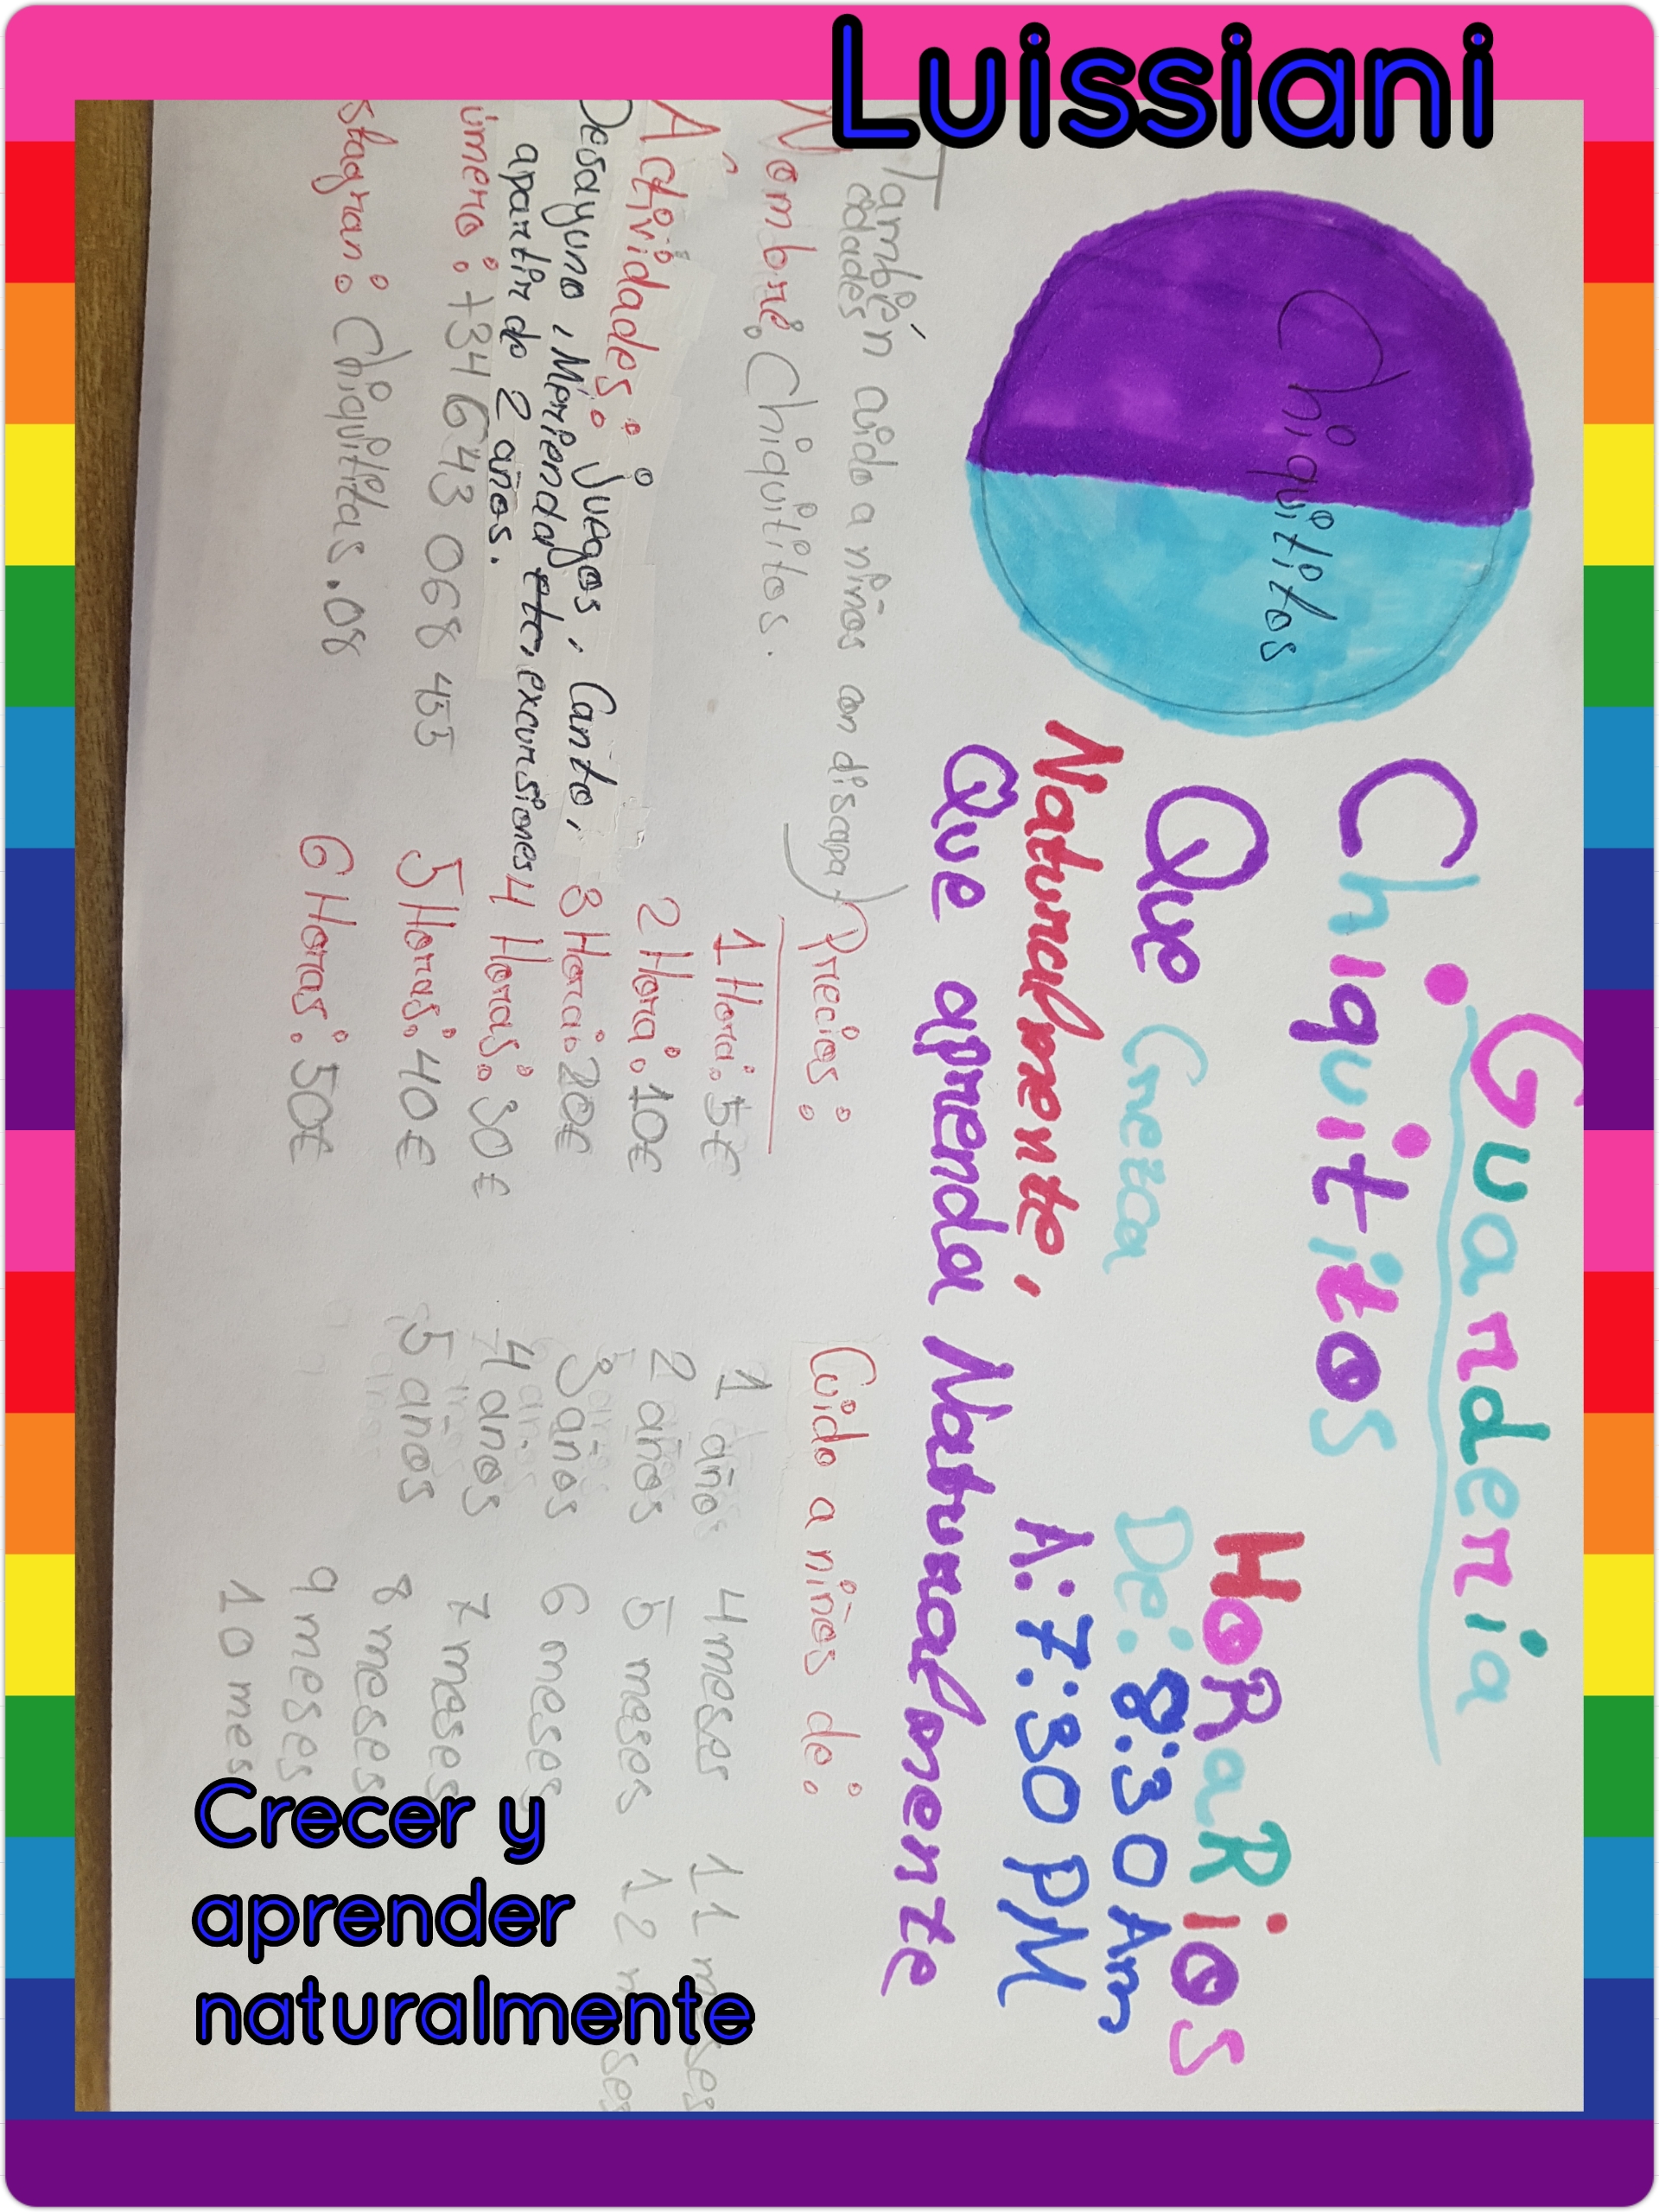 Luissiani
Guardería
Chiquitos
Chiquititos
Que Crezca
Naturalmente,
Que aprenda Naturalmente
HoRaRios
De: 8:30 Am
A: 7:30 PM
También cuido a niños con discapa)
cidades
Nombre: Chiquititos.
Actividades: juegos, Canto,
Desayuno, Merienda etc, excursiones
apartir de 2 años.
úmero: +34 643 068 455
stagran: Chiquititas.08
Precios:
1 Hora: 5€
2 Hora: 10€
3 Hora: 20€
4 Horas: 30€
5 Horas: 40€
6 Horas: 50€
Cuido a niños de:
1 año
2 años
3 años
4 anos
5 años
4 meses
5 meses
6 meses
7 meses
8 meses
9 meses
10 mes
11 meses
12 meses
Crecer y
aprender
naturalmente